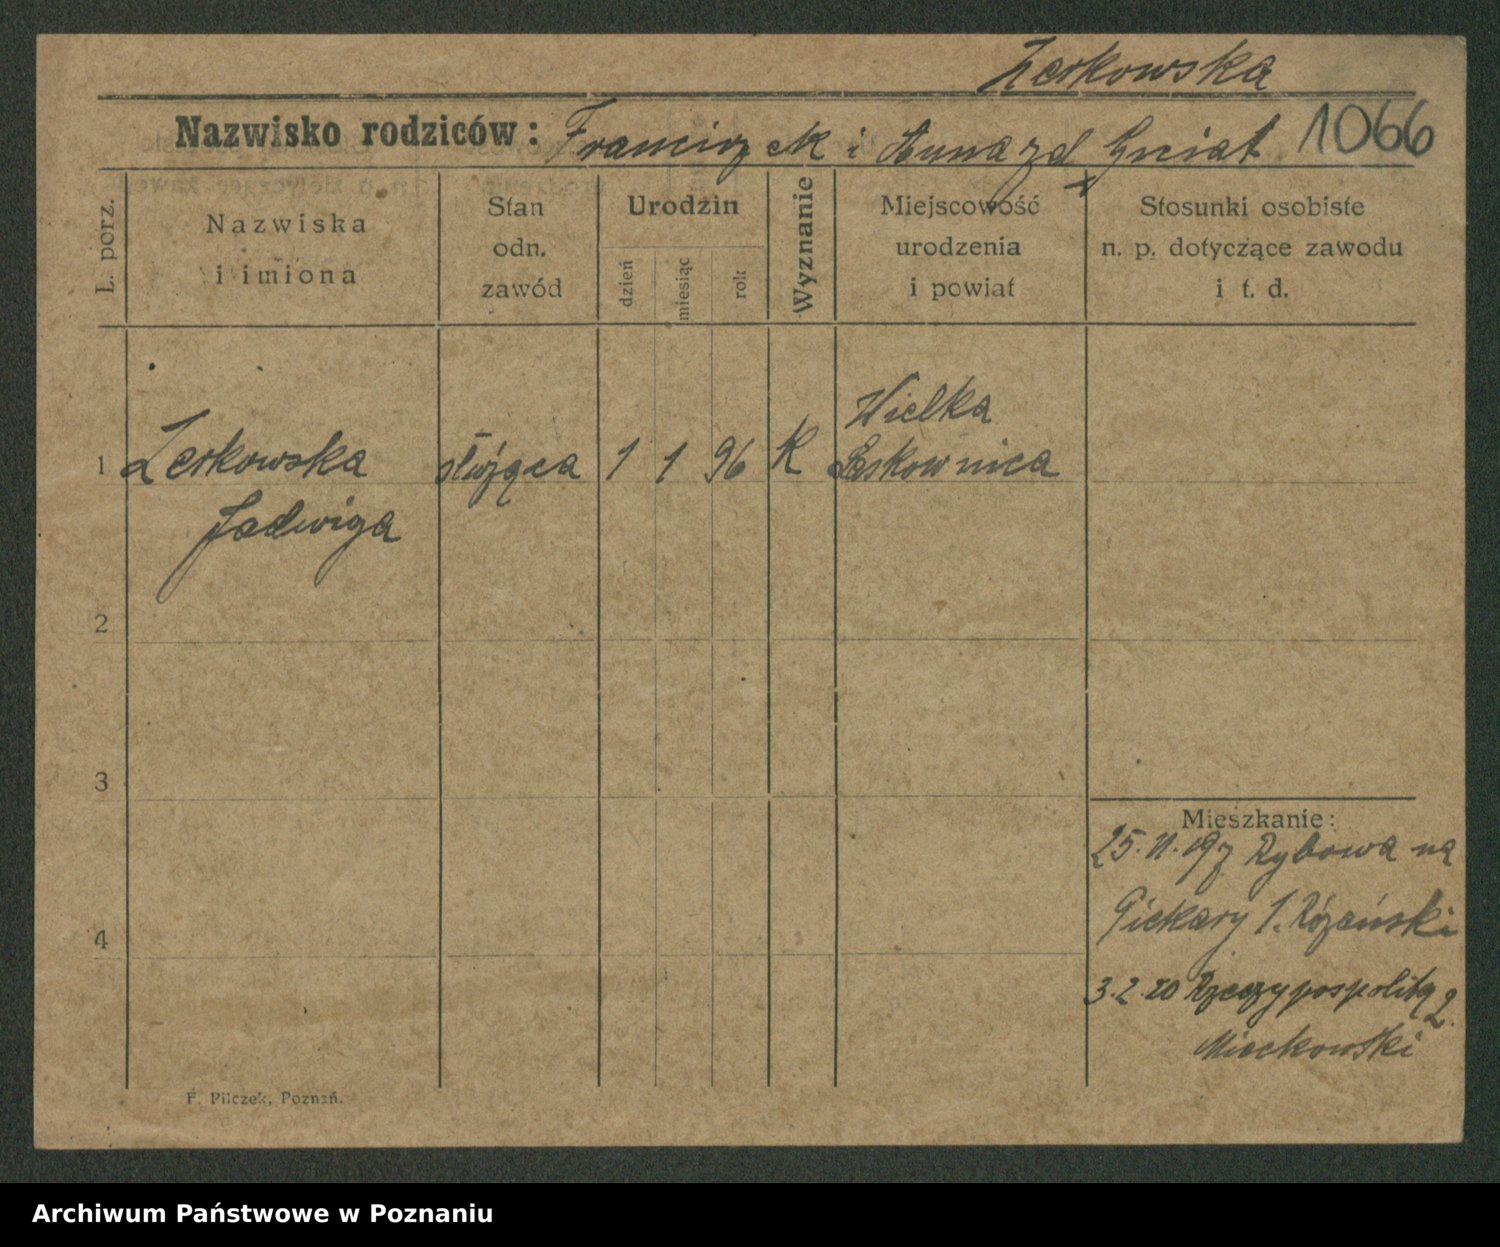 Zerkowska
Nazwisko rodziców: Franciszek i Anna zd Gniat 1066
L. porz.
Nazwiska
i imiona
Stan
odn.
zawód
Urodzin
dzień
miesiąc
rok
Wyznanie
Miejscowość
urodzenia
i powiat
Stosunki osobiste
n. p. dotyczące zawodu
i t. d.
1 Zerkowska służąca 1 1 96 K Wielka
Jadwiga
2
3
4
Mieszkanie:
Rybowa na
Piekary 1. Różański
3.2.20 Rzeczypospolitą 2.
Mieckowski
F. Pilczek, Poznań.
Archiwum Państwowe w Poznaniu